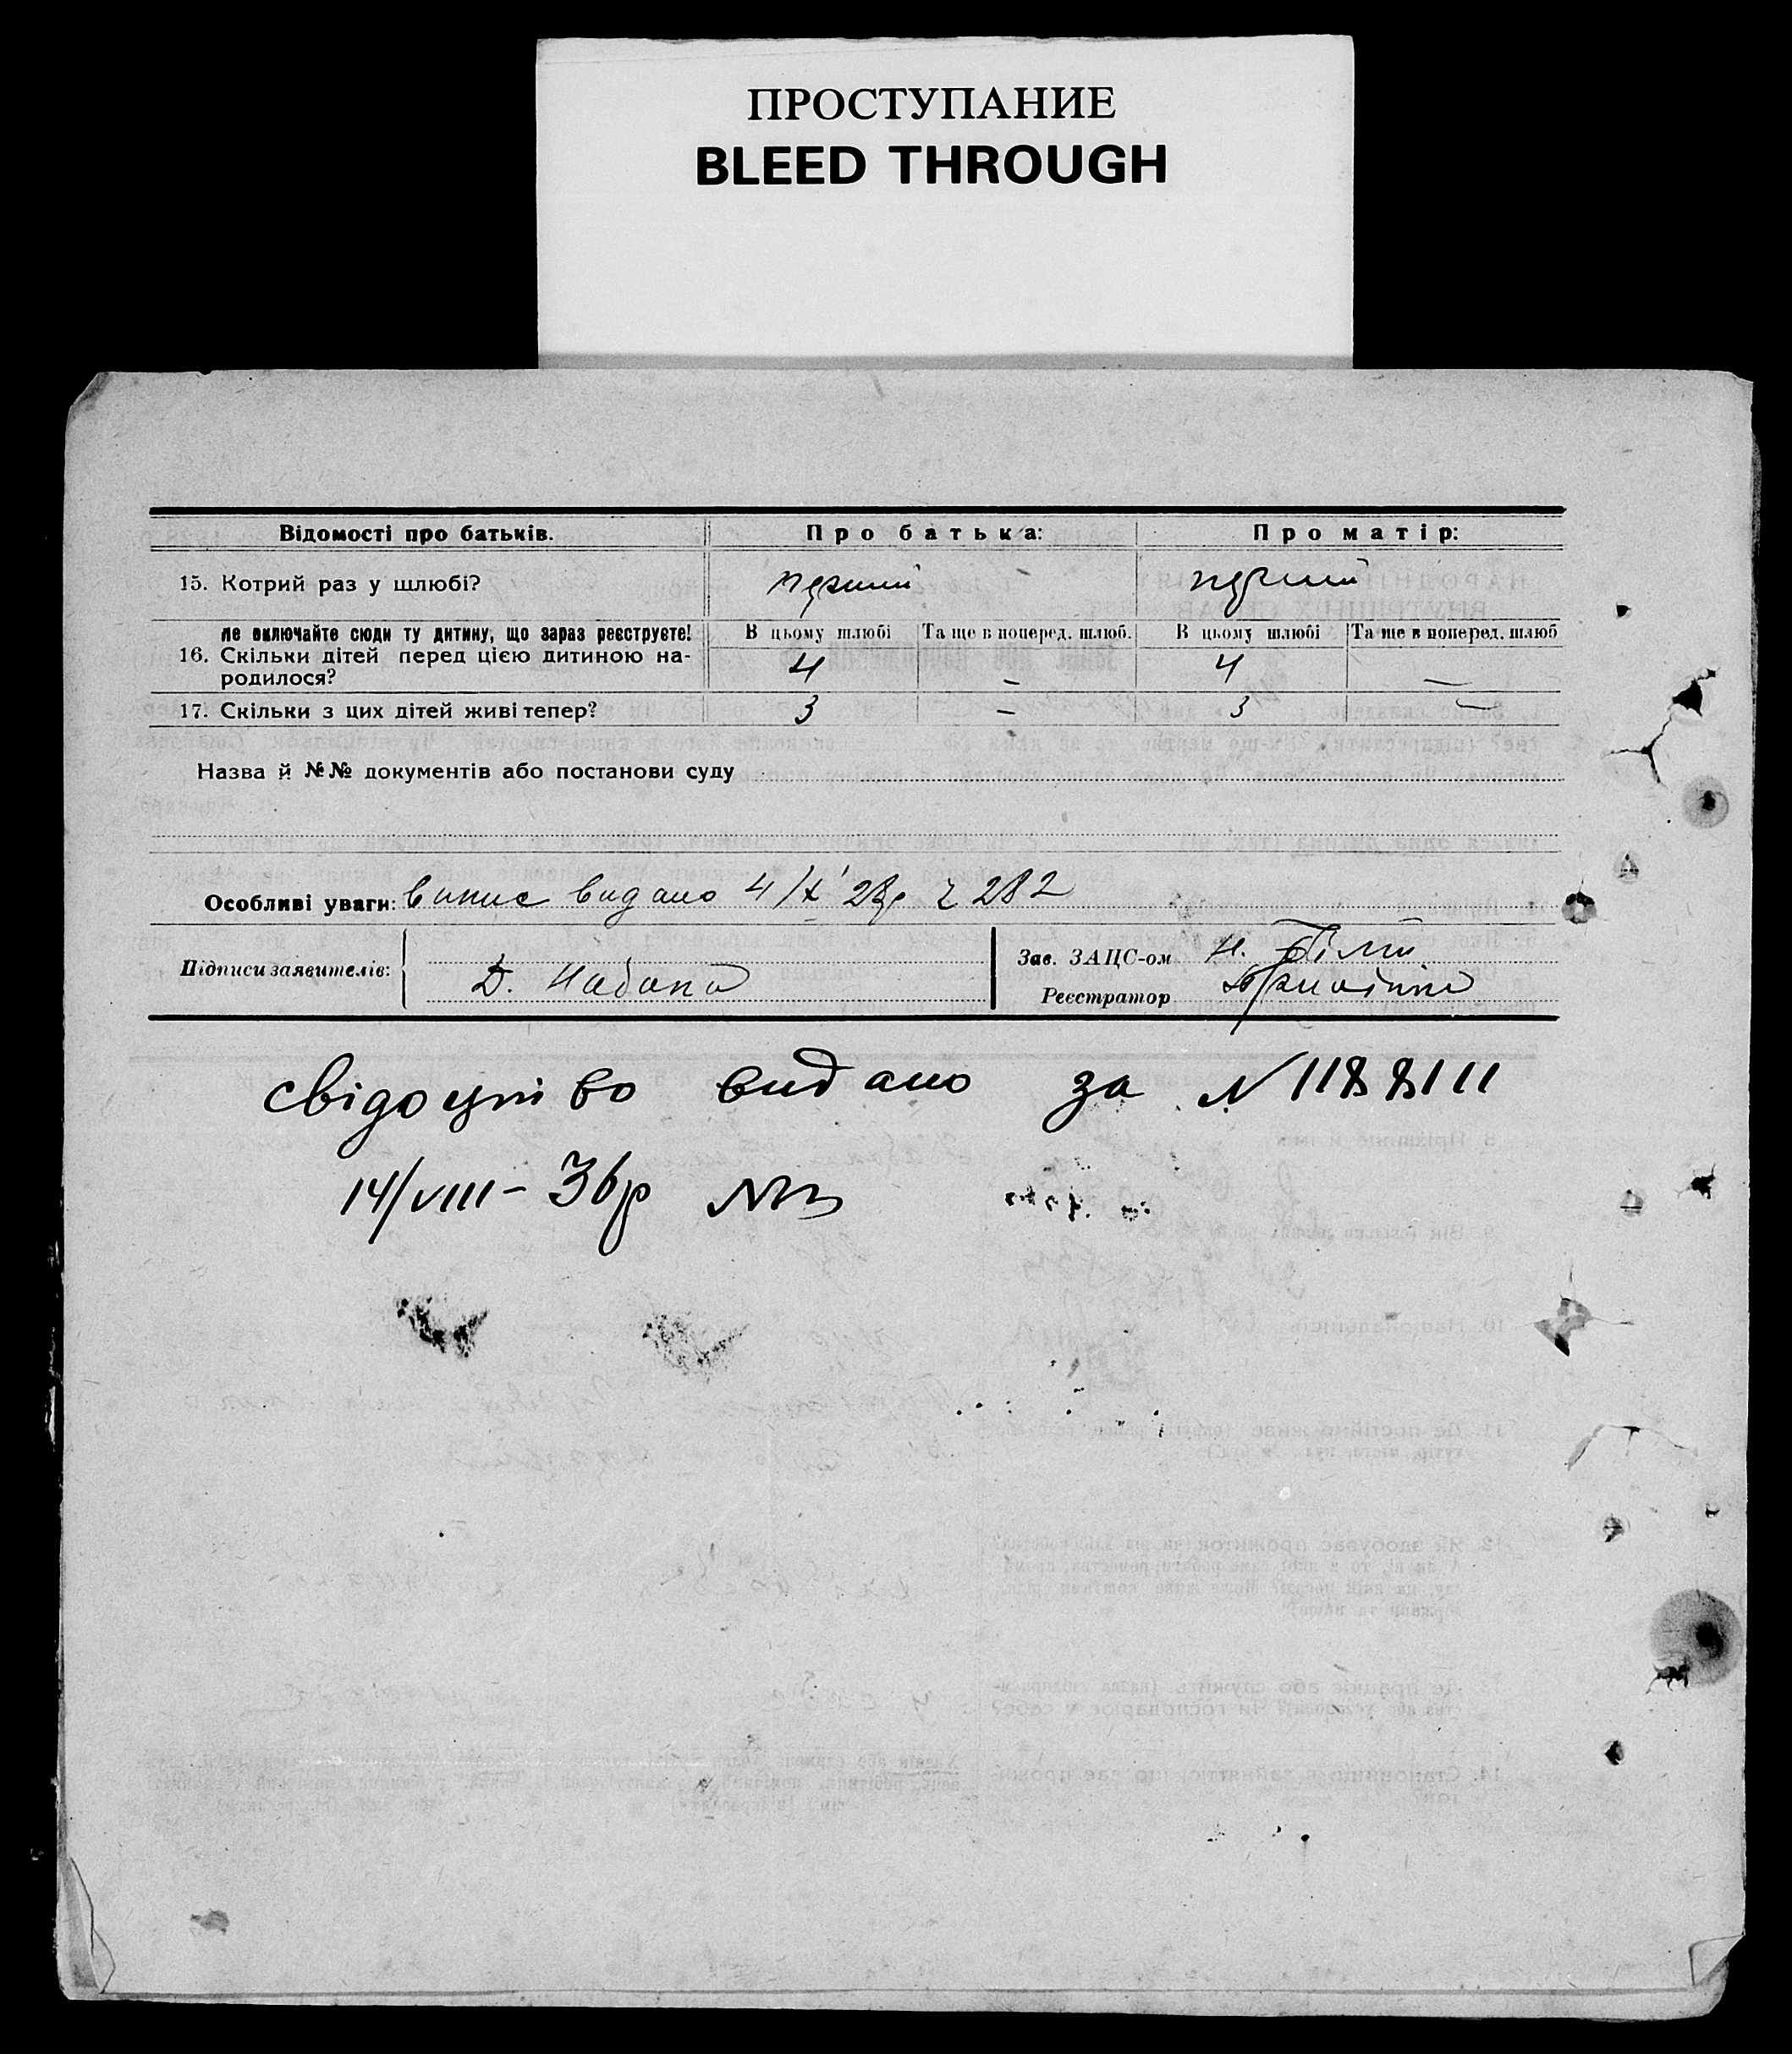 ПРОСТУПАНИЕ
BLEED THROUGH
Відомості про батьків. Про батька: Про матір:
15. Котрий раз у шлюбі? перший перший
Не включайте сюди ту дитину, що зараз реєструєте! В цьому шлюбі Та ще в поперед. шлюб. В цьому шлюбі Та ще в поперед. шлюб
16. Скільки дітей перед цією дитиною на- 4 – 4 –
родилося?
17. Скільки з цих дітей живі тепер? 3 – 3 –
Назва й №№ документів або постанови суду
Особливі уваги: Випис видано 4/X 28р 282
Підписи заявителів: Зав. ЗАЦС-ом Н.
Д. Набока Реєстратор
свідоцтво видано за N 1188111
14/VIII – 36р